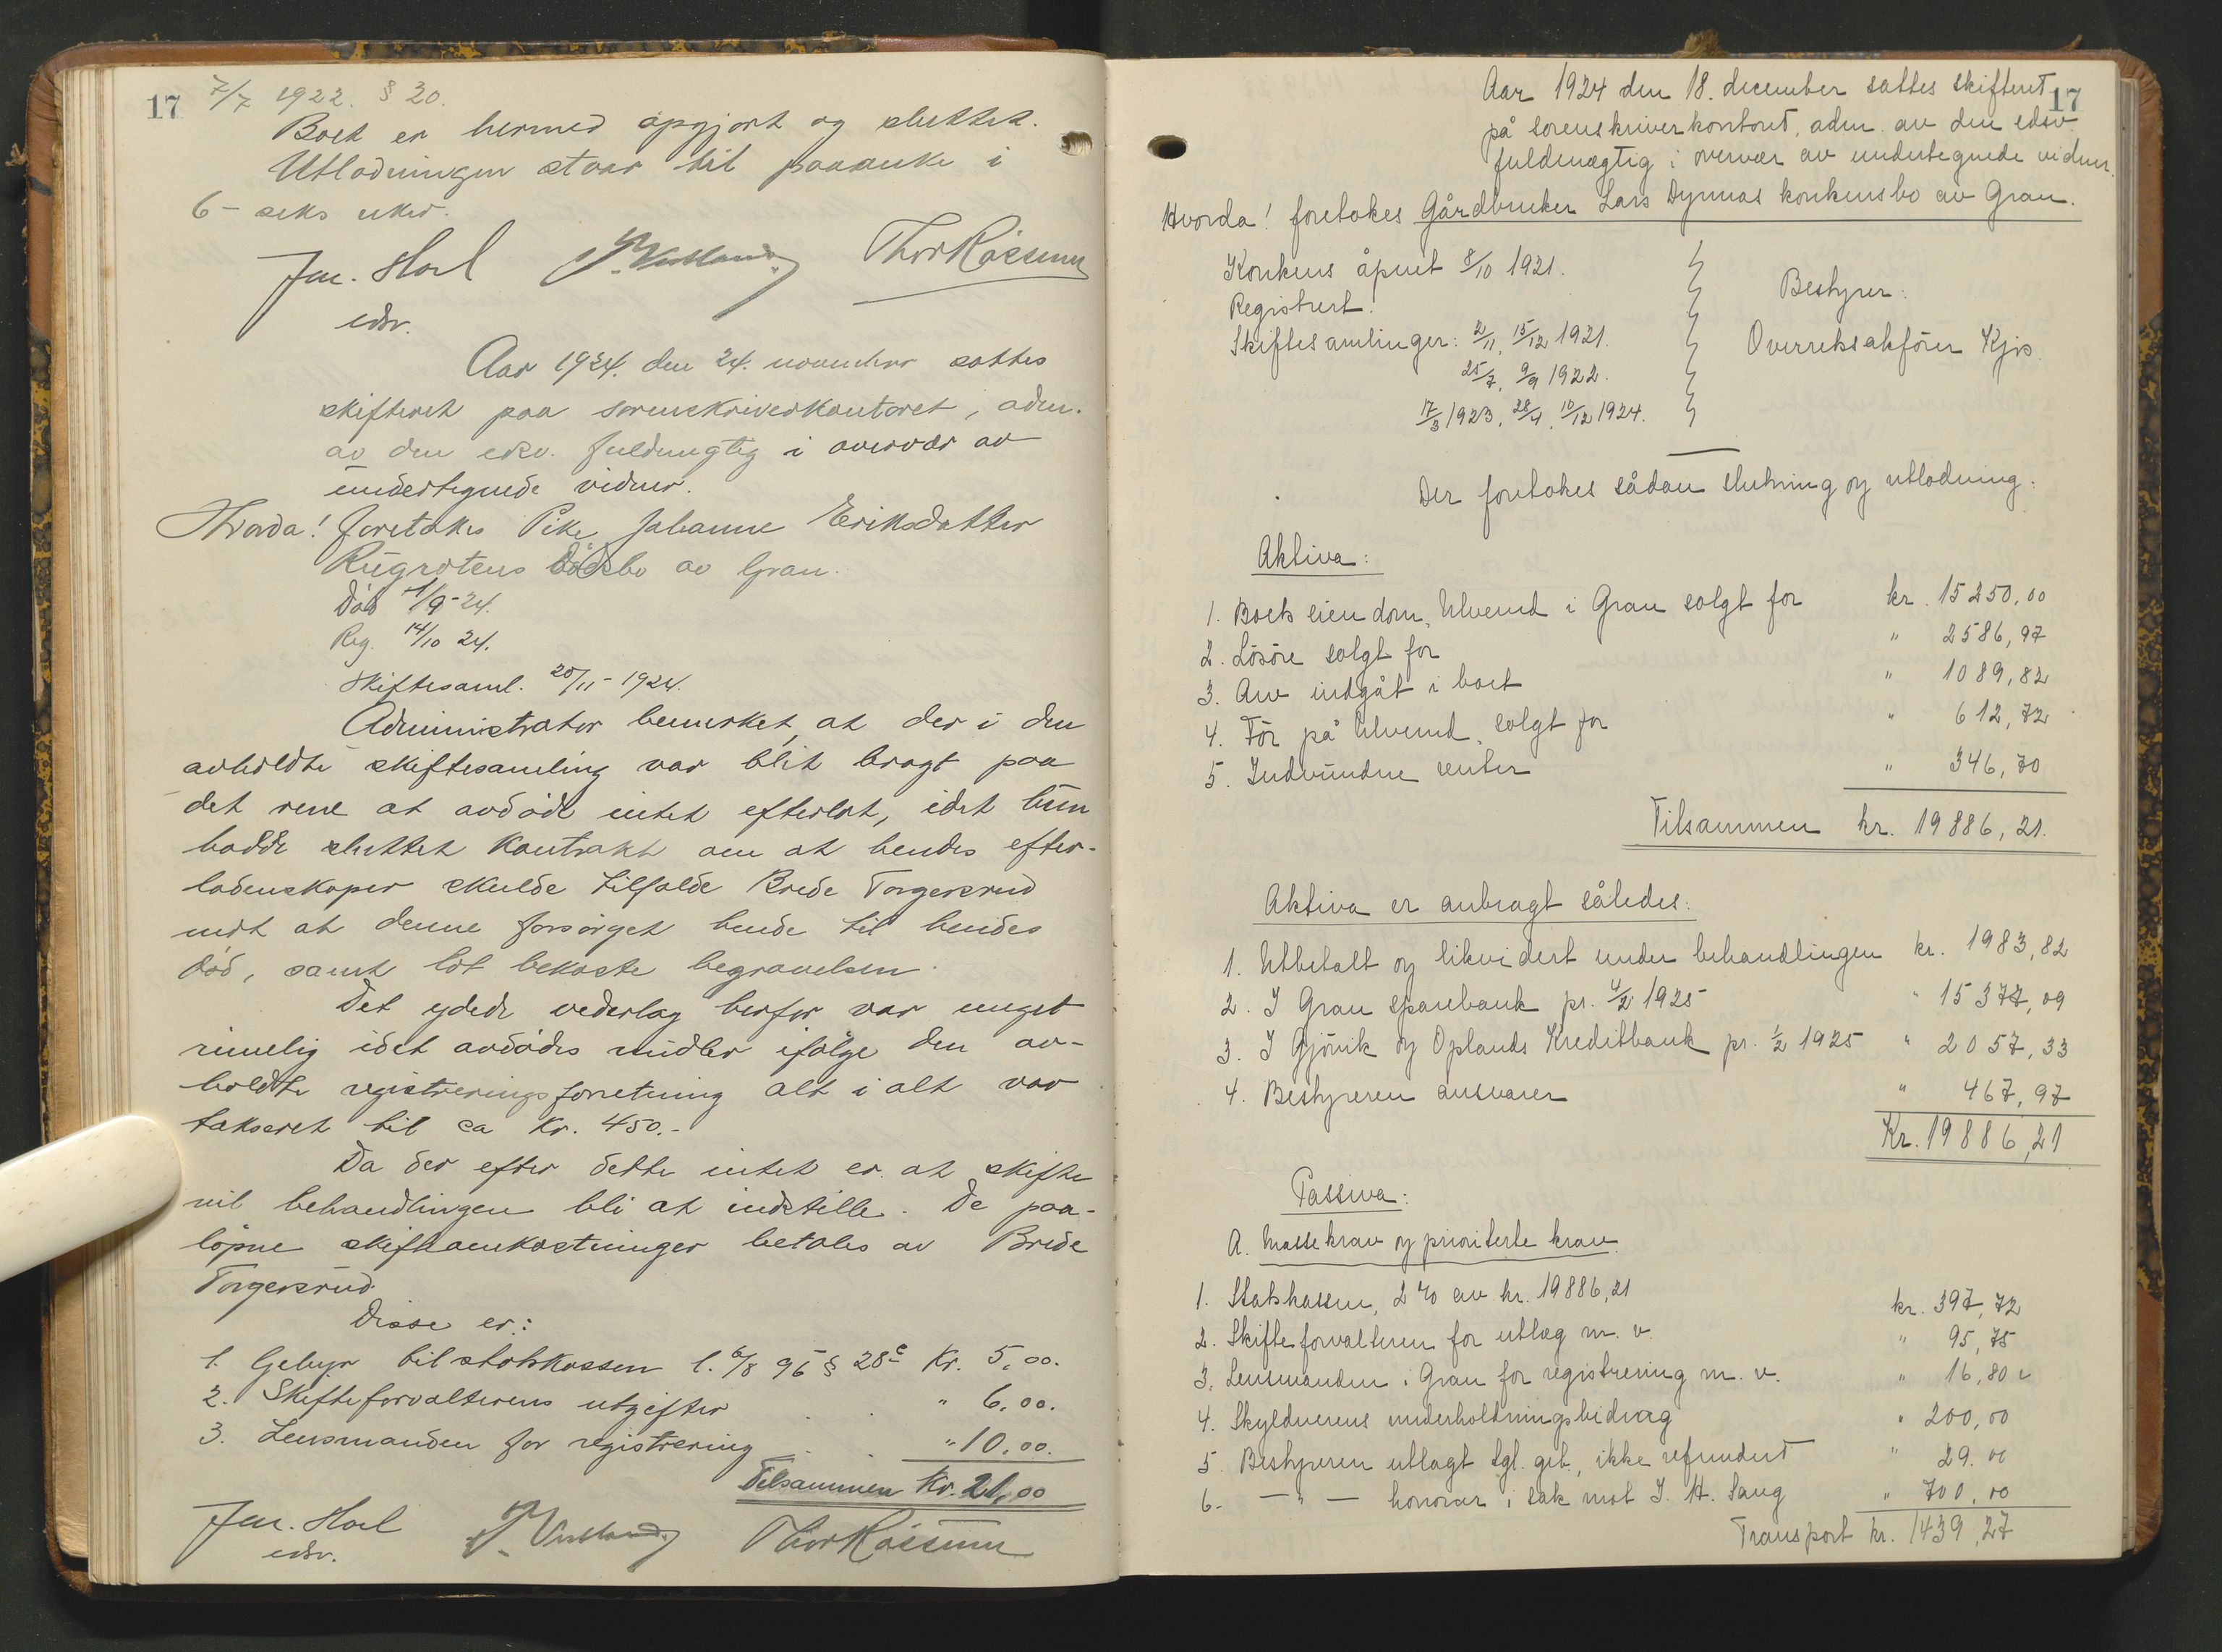 17
7/7 1922. § 20.
Boet er hermed opgjort og sluttet.
Utlodningen staar til paaanke i
6 - seks uker.
Thor Råssum
edsv.
Aar 1924. den 24. november sattes
skifteret paa sorenskriverkontoret, adm.
av den edsv. fuldmægtig i overvær av
undertegnede vidner.
Hvorda! foretokes Pike Johanne Eriksdatter
Rugrotens Dödsbo av Gran.
Död 1/9-24.
Reg. 14/10 24.
Skiftesaml. 20/11- 1924.
Administrator bemerket, at der i den
avholdte skiftesamling var blit bragt paa
det rene at avdöde intet efterlot, idet hun
hadde sluttet kontrakt om at hendes efter-
ladenskaper skulde tilfalde Brede Torgersrud
mot at denne forsörget hende til hendes
död, samt lot bekoste begravelsen.
Det ydede vederlag herfor var meget
rimelig idet avdödes midler ifölge den av-
holdte registreringsforretning alt i alt var
taksert til ca Kr. 450.-
Da der efter dette intet er at skifte
vil behandlingen bli at indstille. De paa-
löpne skifteomkostninger betales av Brede
Torgersrud.
Disse er:
1. Gebyr til statskassen l. 6/8 95 § 28 c Kr. 5,00.
2. Skifteforvalterens utgifter . . " 6,00.
3. Lensmanden for registrering . . " 10,00.
Tilsammen Kr. 21,00
edsv. Thor Råssum
17
Aar 1924 den 18. december sattes skifteret
på sorenskriverkontoret, adm. av den edsv.
fuldmægtig i overvær av undertegnede vidner.
Hvorda! foretokes Gårdbruker Lars Dynnas konkursbo av Gran.
Konkurs åpnet 8/10 1921.
Registrert.
Skiftesamlinger: 2/11, 15/12 1921.
25/7, 9/9 1922.
17/3 1923, 28/4, 10/12 1924.
Bestyrer:
Overretssakförer Kjos.
Der foretokes sådan slutning og utlodning:
Aktiva:
1. Boets eiendom, Ulverud i Gran solgt for kr. 15250,00
2. Lösöre solgt for " 2586,97
3. Arv indgåt i boet " 1089,82
4. För på Ulverud, solgt for " 612,72
5. Indvundne renter " 346,70
Tilsammen kr. 19886,21.
Aktiva er anbragt således:
1. Utbetalt og likvidert under behandlingen kr. 1983,82
2. I Gran sparebank pr. 4/2 1925 " 15377,09
3. I Gjövik og Oplands Kreditbank pr. 1/2 1925 " 2057,33
4. Bestyreren ansvarer " 467,97
Kr. 19886,21
Passiva:
A. Massekrav og prioriterte krav.
1. Statskassen, 2 % av kr. 19886,21 kr. 397,72
2. Skifteforvalteren for utlæg m. v. " 95,75
3. Lensmanden i Gran for registrering m. v. " 16,80
4. Skyldnerens underholdningsbidrag " 200,00
5. Bestyreren utlagt tgl. geb., ikke refundert " 29.00
6. — " — honorar i sak mot J. H. Saug " 700,00
Transport kr. 1439,27